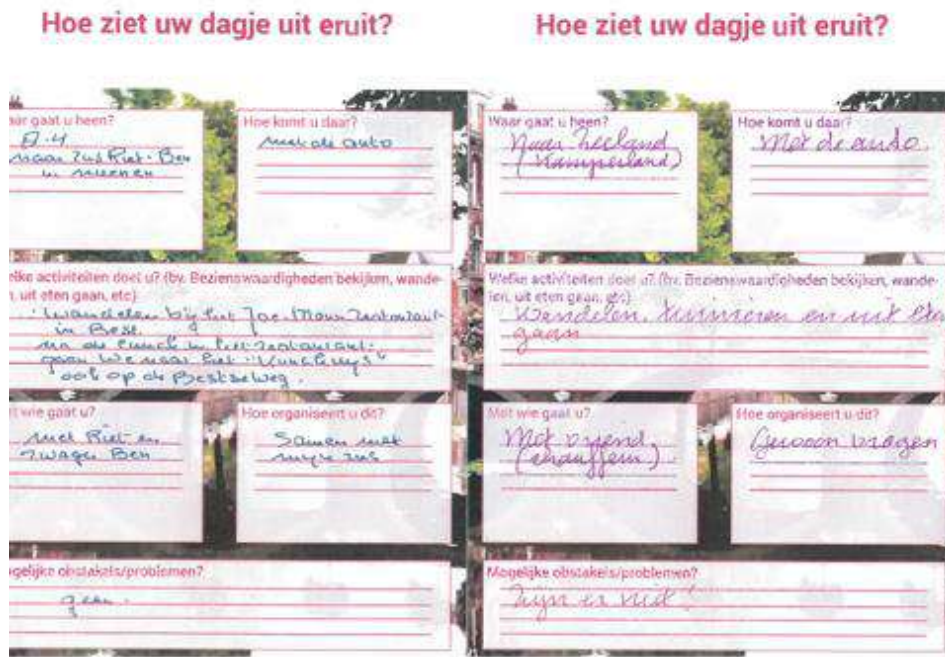 Hoe ziet uw dagje uit eruit?
aar gaat u heen?
8.4
naar zus Riet-Ben
in
Hoe komt u daar?
met de auto
elke activiteiten doet u? (bv. Bezienswaardigheden bekijken, wande-
n, uit eten gaan, etc)
wandelen bij het Joe Mann Restaurant
in Best.
na de lunch in het restaurant.
gaan we naar het
ook op de Bestseweg.
t wie gaat u?
met Riet en
zwager Ben
Hoe organiseert u dit?
Samen met
mijn zus
ogelijke obstakels/problemen?
geen.
Hoe ziet uw dagje uit eruit?
Waar gaat u heen?
Naar Zeeland
(Kamperland)
Hoe komt u daar?
Met de auto.
Welke activiteiten doet u? (bv. Bezienswaardigheden bekijken, wande-
len, uit eten gaan, etc)
Wandelen, tuinieren en uit eten
gaan
Met wie gaat u?
Met vriend
(chauffeur).
Hoe organiseert u dit?
Gewoon vragen
Mogelijke obstakels/problemen?
Zijn er niet!